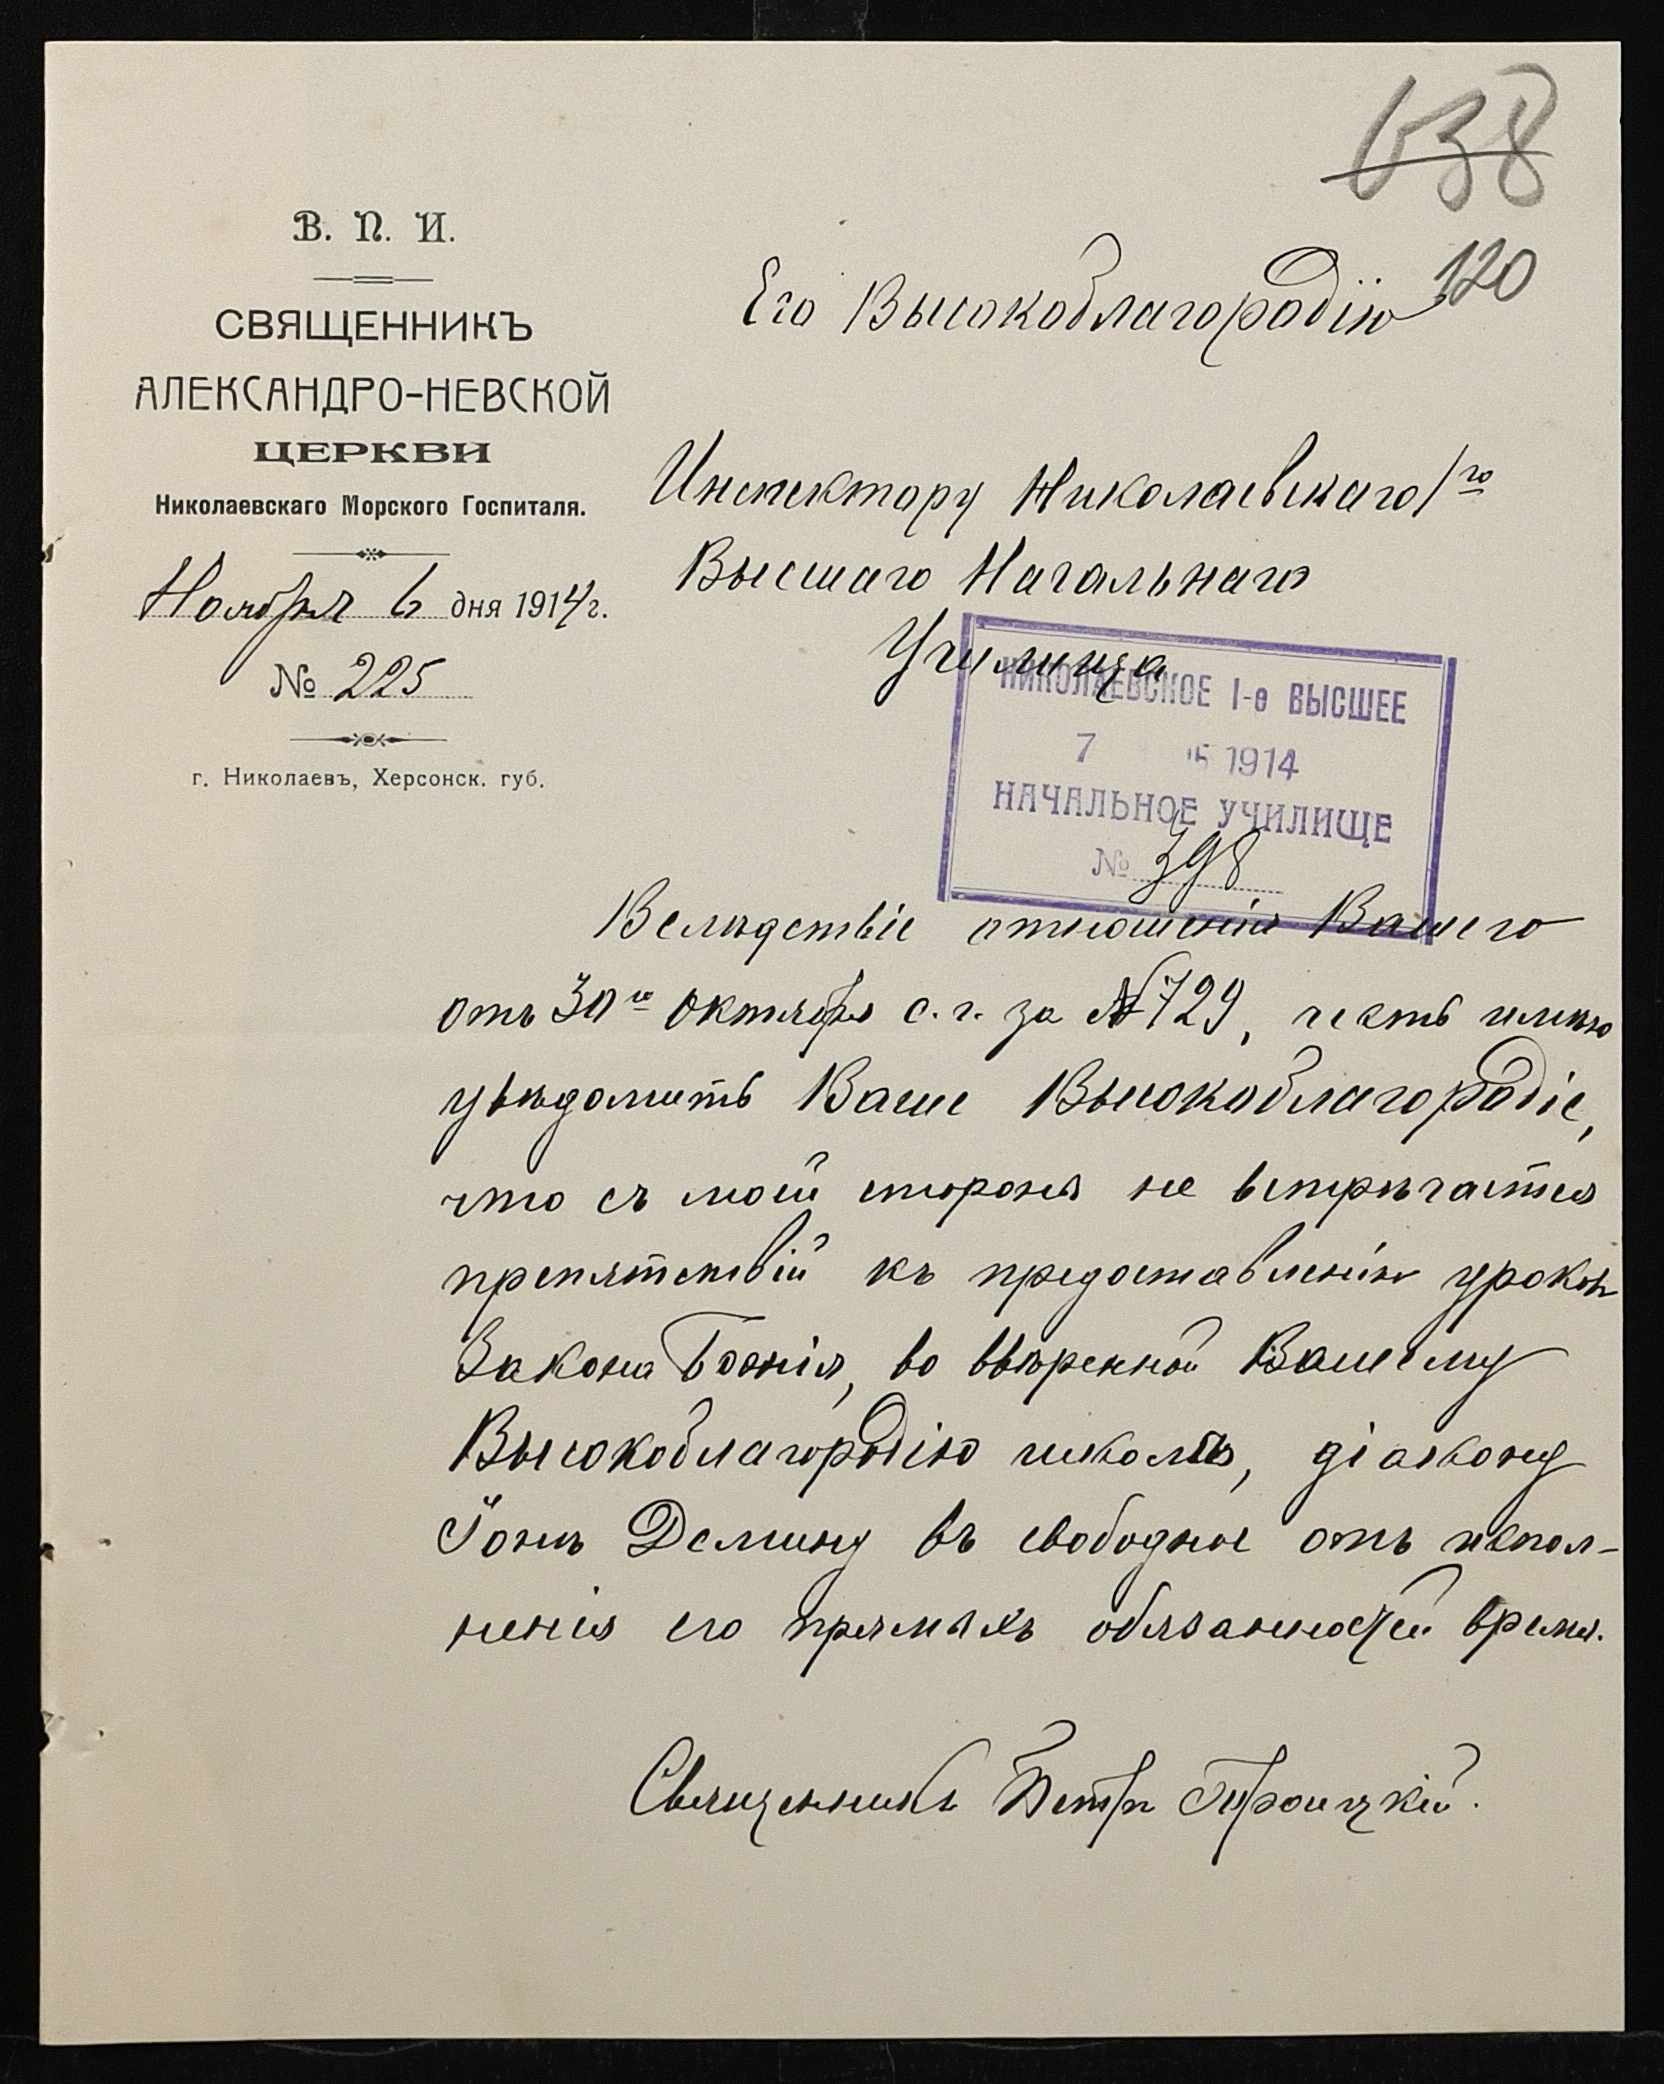 638
120
В. П. И.
СВЯЩЕННИКЪ
АЛЕКСАНДРО-НЕВСКОЙ
ЦЕРКВИ
Николаевскаго Морского Госпиталя.
Ноября 6 дня 1914 г.
№ 225
г. Николаевъ, Херсонск. губ.
Его Высокоблагородію
Инспектору Николаевскаго 1го
Высшаго Начальнаго
Училища
НИКОЛАЕВСКОЕ 1-е ВЫСШЕЕ
7 1914
НАЧАЛЬНОЕ УЧИЛИЩЕ
№ 398
Вслѣдствіе отношенія Вашего
отъ 30го Октября с. г. за № 729, честь имѣю
увѣдомить Ваше Высокоблагородіе,
что съ моей стороны не встрѣчается
препятствій къ предоставленію уроковъ
Закона Божія, во ввѣренной Вашему
Высокоблагородію школѣ, діакону
Іонѣ Демину въ свободное отъ испол-
ненія его прямыхъ обязанностей время.
Священникъ Петръ Троицкій.